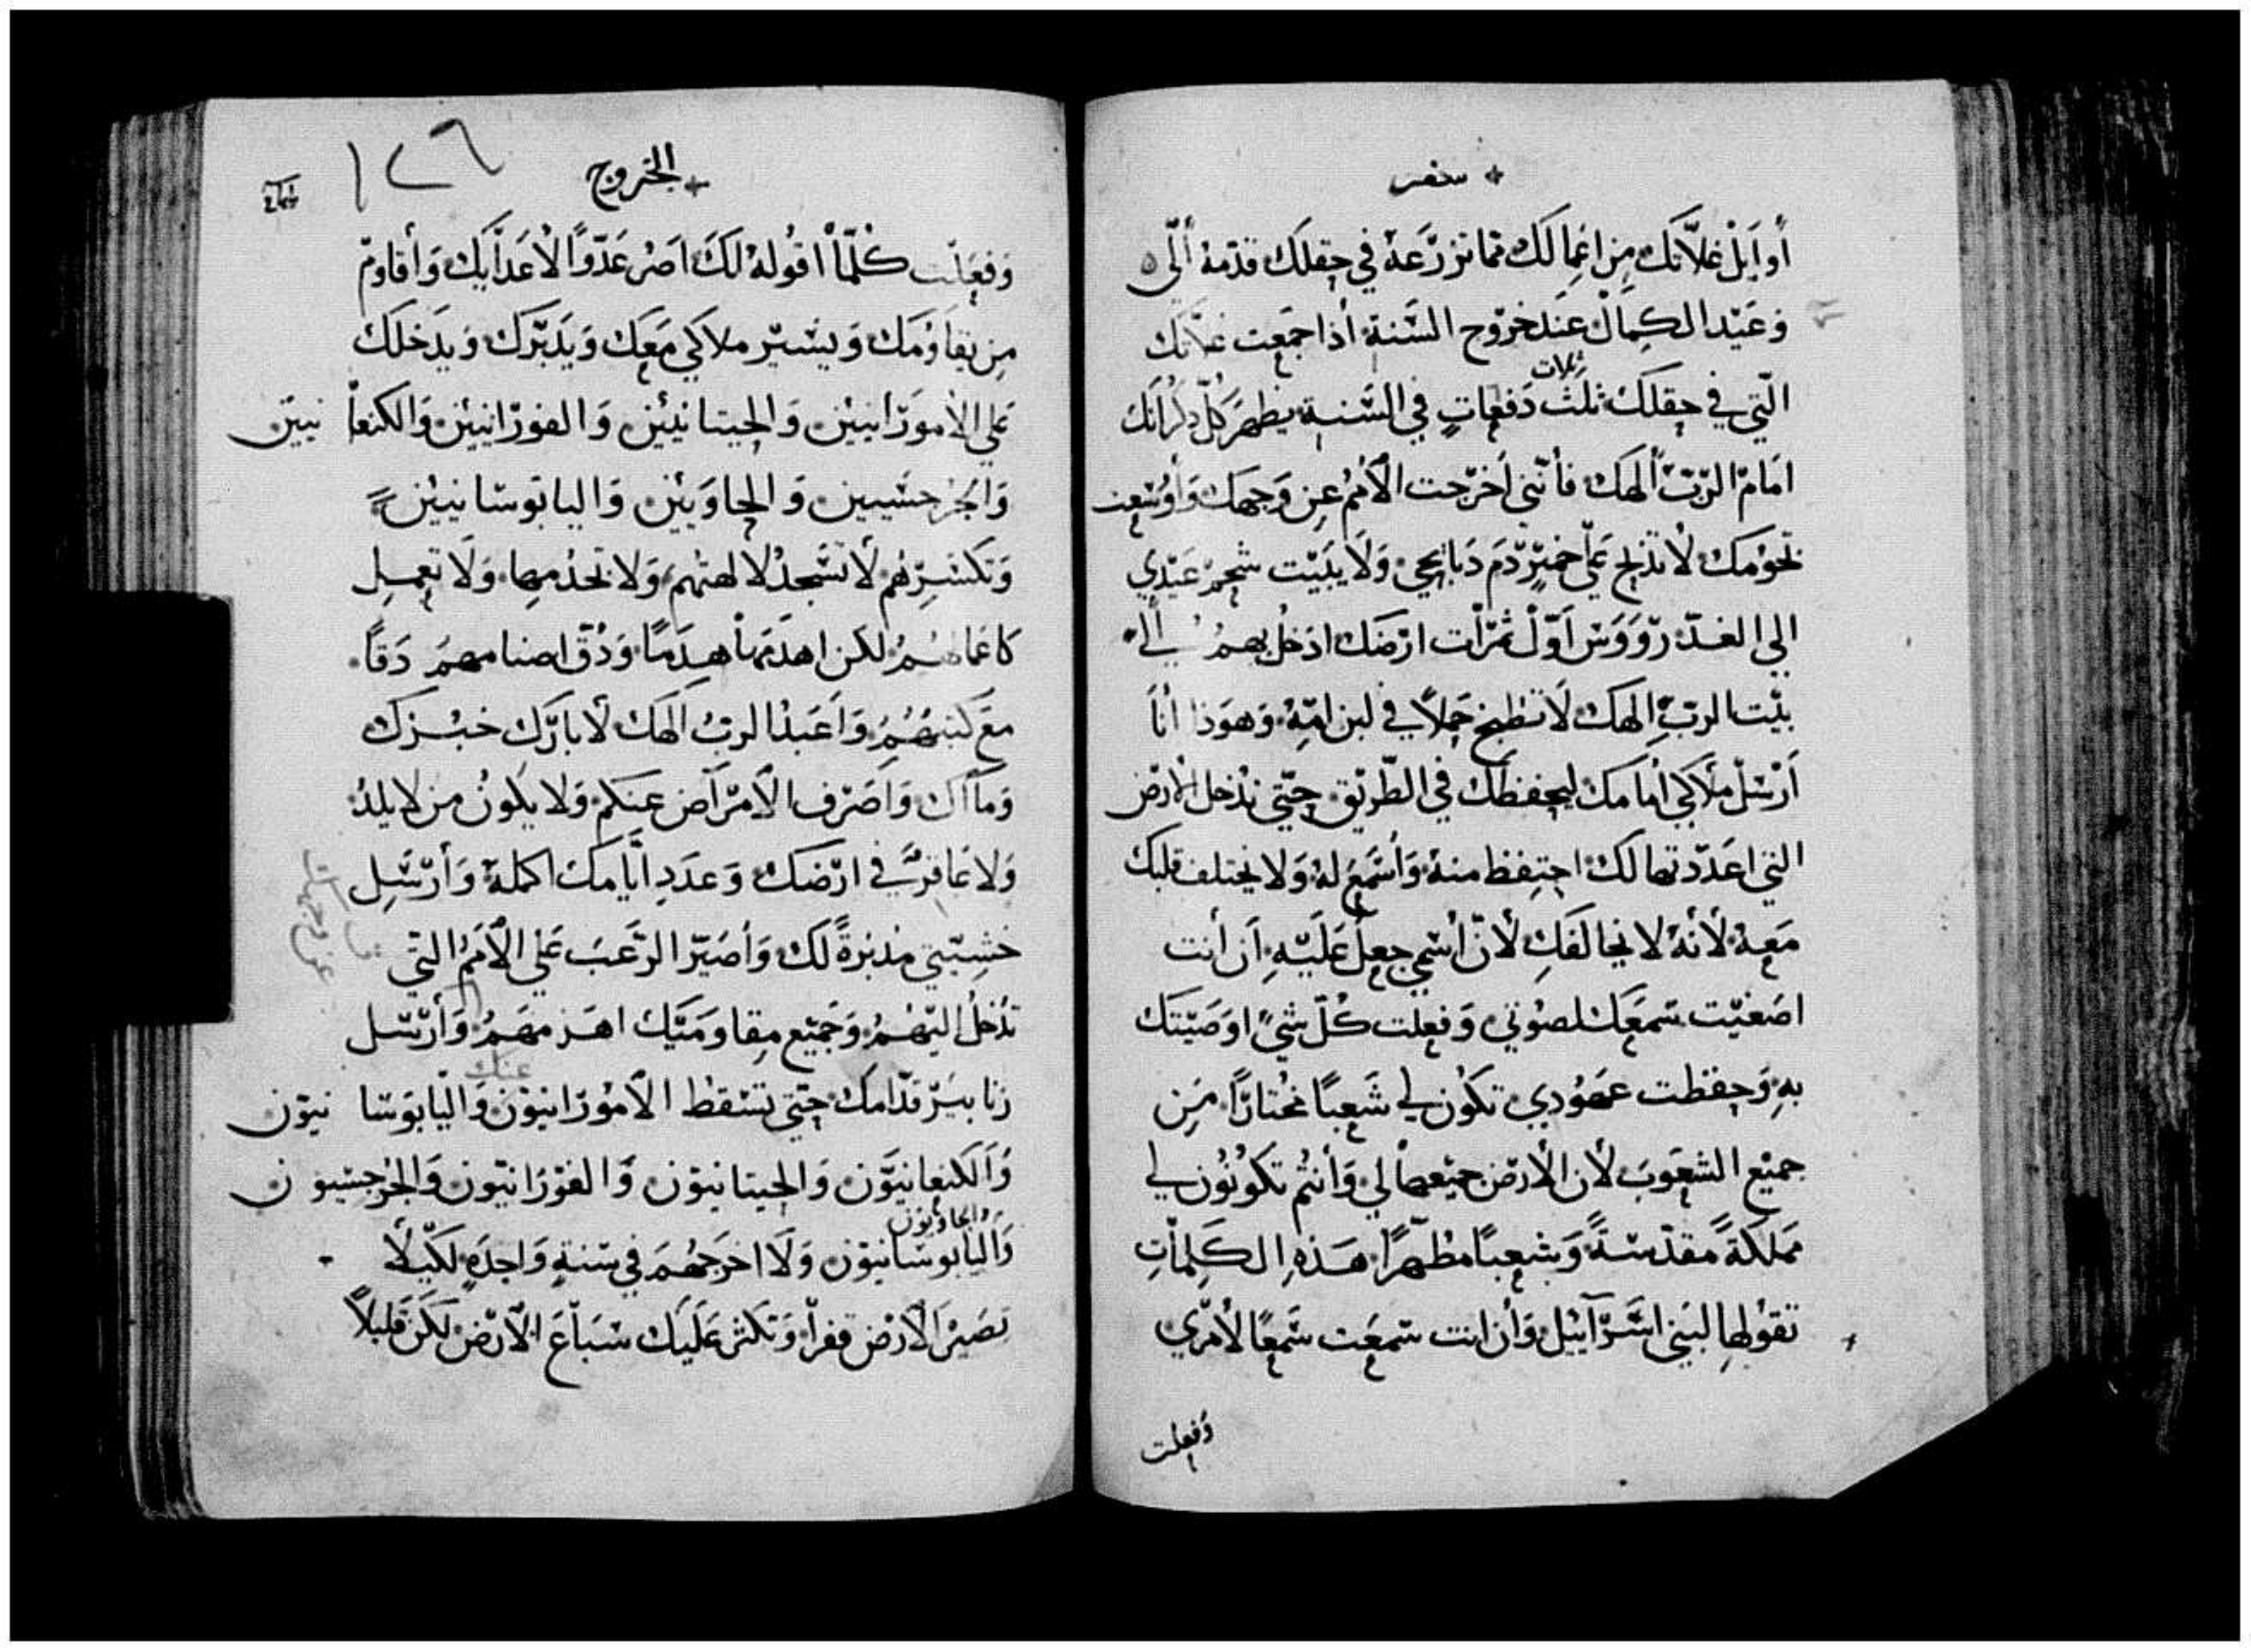 سفر
أوايل غلاتك من اعمالك مما تزرعه في حقلك قدمه ألي
وعيد الكمال عند خروج السنة أذا جمعت غلاتك
ثلاث
التي في حقلك ثلث دفعات في السنة يظهر كل ذكرانك
امام الرب ألهك فأنني أخرجت الأمم عن وجهك وأوسعت
تخومك لا تذبح علي خمير دم ذبايحي ولا يبيت شحم عيدي
الي الغد رووس اول ثمرات ارضك ادخل بهم الي
بيت الرب الهك لا تطبخ حملاً في لبن امه وهوذا أنا
أرسل ملاكي أمامك ليحفظك في الطريق حتي تدخل الأرض
التي اعددتها لك احتفظ منه وأسمع له ولا يختلف قلبك
معه لأنه لا يخالفك لأن أسمي جعل عليه أن أنت
اصغيت سمعك لصوتي وفعلت كل شيً اوصيتك
به وحفظت عهودي تكون لي شعباً مختاراً من
جميع الشعوب لأن الأرض جميعها لي وأنتم تكونون لي
مملكةً مقدسةً وشعباً مطهراً هذه الكلمات
تقولها لبني اسرآييل وأن انت سمعت سمعًا لأمري
وفعلت
الخروج
١٢٦
وفعلت كلما اقوله لك اصر عدوًا لأعدآيك وأقاوم
من يقاومك ويسير ملاكي معك ويدبرك ويدخلك
علي الأمورانيين والحيتانيين والفورانيين والكنعانيين
والجرجسيين والحاويين واليابوسانيين
وتكسرهم لا تسجد لالهتهم ولا تخدمها ولا تعمل
كاعمالهم لكن اهدمها هدمًا ودق اصنامهم دقاً
مع كتبهم واعبد الرب الهك لأبارك خبزك
ومآاك واصرف الأمرآض عنكم ولا يكون من لا يلد
ولا عاقر في ارضك وعدد أيامك اكمله وأرسل
خشيتي مدبرةً لك وأصير الرعب علي الأمم التي
تدخل اليهم وجميع مقاوميك اهزمهم وأرسل
عنك
زنابير قدامك حتي تسقط الأمورانيون واليابوسانيون
والكنعانيون والحيتانيون والفورانيون والجرجسيون
والحاويون
واليابوسانيون ولا اخرجهم في سنةٍ واحدةٍ لكيلا
تصير الأرض قفراً وتكثر عليك سباع الأرض لكن قليلاً